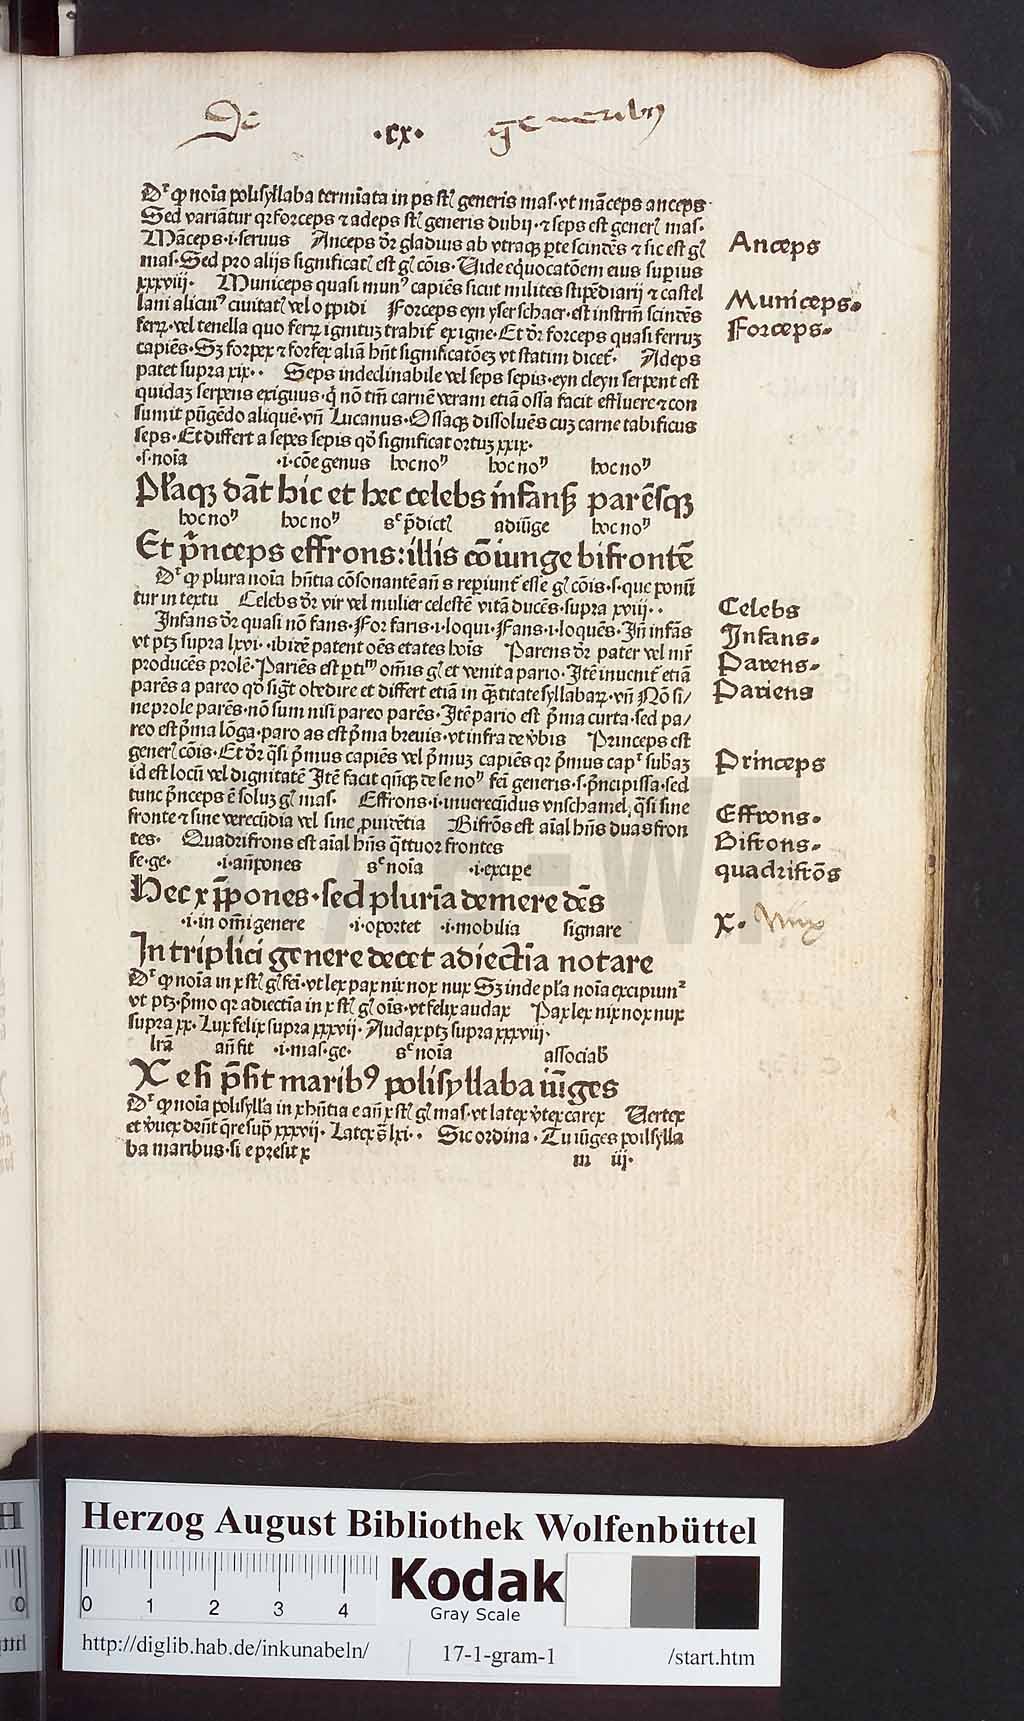 De generibꝯ
·cx·
Dʳ qꝫ noīa polisyllaba termīata in ps stꝉ generis mas·vt māceps anceps·
Sed variātur qꝛ forceps ⁊ adeps stꝉ generis dubij·⁊ seps est generꝉ mas·
Māceps·i·seruus Anceps dr̄ gladius ab vtraqꝫ ꝑte scindēs ⁊ sic est gꝉ
mas·Sed pro alijs significatꝉ est gꝉ cōis·Uide eqͥuocatōem eius suꝑius
xxxviii· Municeps quasi munꝰ capiēs sicut milites stipēdiarij ⁊ castel
lani alicuiꝰ ciuitatꝉ vel oppidi Forceps eyn yser schaer·est instrm̄ scindēs
ferꝝ·vel tenella quo ferꝝ ignituꝫ trahit̄ ex igne·Et dr̄ forceps quasi ferruꝫ
capiēs·Sꝫ forpex ⁊ forfex aliā hn̄t significatōeꝫ vt statim dicet̄· Adeps
patet supra xix·· Seps indeclinabile vel seps sepis·eyn cleyn serpent est
quidaꝫ serpens exiguus·qͥ nō tm̄ carnē veram etiā ossa facit effluere ⁊ con
sumit pūgēdo aliquē·vn̄ Lucanus·Ossaqꝫ dissoluēs cuꝫ carne tabificus
seps·Et differt a sepes sepis qd̓ significat ortuꝫ xxix·
·s·noīa ·i·cōe genus hoc noⁿ hoc noⁿ hoc noⁿ
Plaqꝫ dāt hic et hec celebs infanſꝫ parēsqꝫ
hoc noⁿ hoc noⁿ sᶜ p̄dictꝉ adiūge hoc noⁿ
Et p̄nceps effrons:illis cōiunge bifrontē
Dʳ qꝫ plura noīa hn̄tia cōsonantē an̄ s reꝑiunt̄ esse gꝉ cōis·s·que ponū
tur in textu Celebs dr̄ vir vel mulier celestē vitā ducēs·supra xviii··
Infans dr̄ quasi nō fans·For faris·i·loqui·Fans·i·loquēs·In̄ infās
vt ptꝫ supra lxvi··ibidē patent oēs etates hoīs Parens dr̄ pater vel mr̄
producēs prolē·Pariēs est ꝑtiᵐ om̄is gꝉ et venit a pario·Itē inuenit̄ etiā
parēs a pareo qd̓ sigͭ obedire et differt etiā in qͣtitate syllabaꝝ·vn̄ Nō si/
ne prole parēs·nō sum nisi pareo parēs·Itē pario est p̄ma curta·sed pa/
reo est p̄ma lōga·paro as est p̄ma breuis·vt infra de v̓bis Princeps est
generꝉ cōis·Et dr̄ qͣsi p̄mus capiēs vel p̄muꝫ capiēs qꝛ p̄mus capʳ subaꝫ
id est locū vel dignitatē Itē facit qn̄qꝫ de se noⁿ fēi generis·s·p̄ncipissa·sed
tunc p̄nceps ē soluꝫ gꝉ mas· Effrons·i·inuerecūdus vnschamel qͣsi sine
fronte ⁊ sine verecūdia vel sine ꝓuidētia Bifrōs est aīal hn̄s duas fron
tes· Quadrifrons est aīal hn̄s qͣttuor frontes
fe·ge· ·i·an̄pones sᶜ noīa ·i·exciꝑe
Hec x p̄pones·sed plurīa demere dēs
·i·in om̄i genere ·i·oportet ·i·mobilia signare
In triplici genere decet adiectīa notare
Dʳ qꝫ noīa in x stꝉ gꝉ fēi·vt lex pax nix nox nux Sꝫ inde pl̄a noīa excipiunᵗ
vt ptꝫ·p̄mo qꝛ adiectīa in x stꝉ gꝉ oīs·vt felix audax Pax lex nix nox nux
supra xx·Lux felix supra xxxvii·Audax ptꝫ supra xxxviii·
lr̄ā an̄ fit ·i·mas·ge· sᶜ noīa associaƀ
X e si p̄sit maribꝰ polisyllaba iūges
Dʳ qꝫ noīa polisylla in x hn̄tia e an̄ x stꝉ gꝉ mas·vt latex v̓tex carex Uertex
et v̓uex drn̄t qͥre supᷓ xxxvii·Latex s̄ lxi·· Sic ordina·Tu iūges polisylla
ba maribus·si e presit x
m iij·
Anceps
Municeps·
Forceps·
Celebs
Infans·
Parens·
Pariens
Princeps
Effrons·
Bifrons·
quadrifrōs
X·
Herzog August Bibliothek Wolfenbüttel
0 1 2 3 4
Kodak
Gray Scale
http://diglib.hab.de/inkunabeln/ 17-1-gram-1 /start.htm